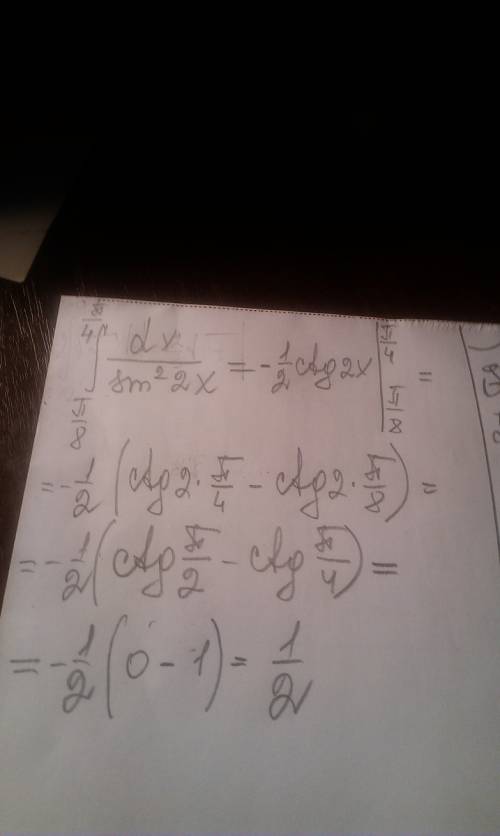 ∫_{π/8}^{π/4} dx / sin² 2x = - 1/2 ctg 2x |_{π/8}^{π/4} =
= - 1/2 (ctg 2 · π/4 - ctg 2 · π/8) =
= - 1/2 (ctg π/2 - ctg π/4) =
= - 1/2 (0 - 1) = 1/2